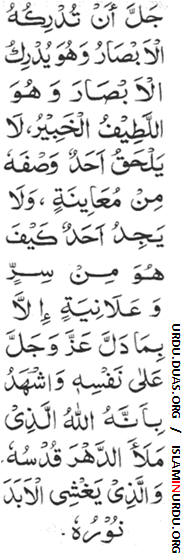 جَلَّ أَنْ تُدْرِكَهُ
الْاَبْصَارُ وَهُوَ يُدْرِكُ
الْاَبْصَارَ وَهُوَ
اللَّطِيْفُ الْخَبِيْرُ، لَا
يَلْحَقُ اَحَدٌ وَصْفَهٗ
مِنْ مُعَايَنَةٍ، وَلَا
يَجِدُ اَحَدٌ كَيْفَ
هُوَ مِنْ سِرٍّ
وَعَلَانِيَةٍ إِلَّا
بِمَا دَلَّ عَزَّ وَجَلَّ
عَلٰى نَفْسِهٖ وَاشْهَدُ
بِاَنَّهُ اللهُ الَّذِىْ
مَلَأَ الدَّهْرَ قُدْسُهٗ
وَالَّذِىْ يَغْشَى الْاَبَدَ
نُوْرُهٗ.
URDU.DUAS.ORG / ISLAMINURDU.ORG